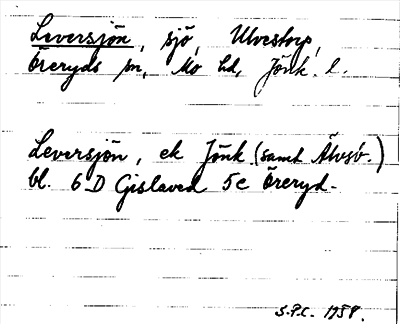 Leversjön, sjö, Ulvestorp,
Öreryds sn, Mo hd, Jönk. l.
Leversjön, ek Jönk (samt Älvsb.)
bl. 6D Gislaved 5c Öreryd.
S.P.C. 1958.